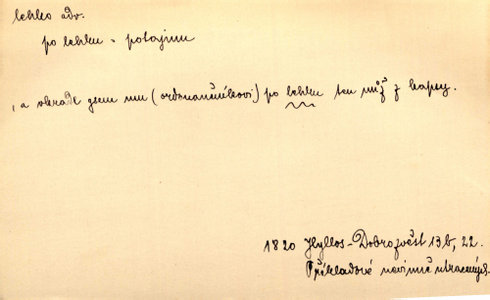 lehko adv.
po lehku - potajmu
, a ukradl gsem mu (ordonančníkovi) po lehku ten nůž z kapsy.
1820 Hyllos-Dobrozvěst 13b, 22.
Příkladové nevinně utracených.